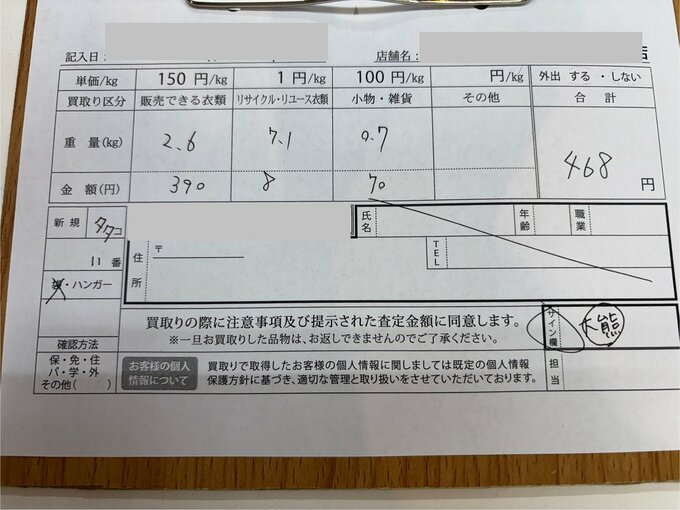 記入日： 店舗名： 店
単価/kg 150 円/kg 1 円/kg 100 円/kg 円/kg 外出 する ・ しない
買取り区分 販売できる衣類 リサイクル・リユース衣類 小物・雑貨 その他 合 計
重 量(kg) 2.6 7.1 0.7
468 円
金 額(円) 390 8 70
新 規 タタコ
11 番
袋・ハンガー
確認方法
保・免・住
パ・学・外
その他( )
氏名 年齢 職業
〒
住所 TEL
買取りの際に注意事項及び提示された査定金額に同意します。
※一旦お買取りした品物は、お返しできませんのでご了承ください。
サイン欄 大熊
お客様の個人情報について
買取りで取得したお客様の個人情報に関しましては既定の個人情報
保護方針に基づき、適切な管理と取り扱いをさせていただいております。
担当